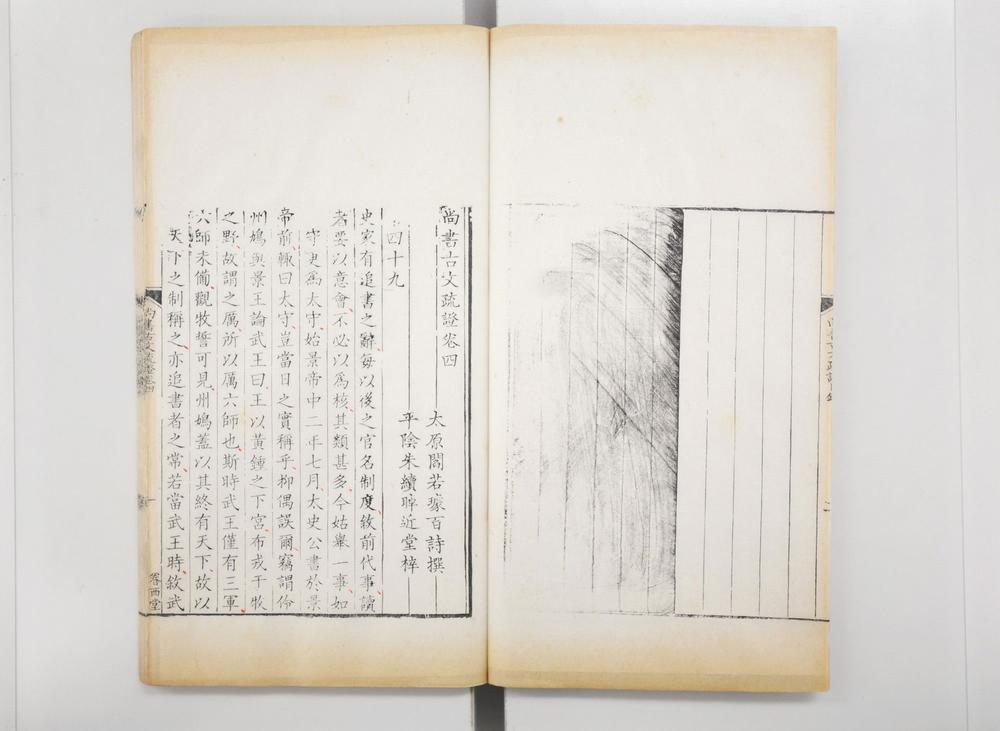 尚書古文疏證卷四
太原閻若璩百詩撰
平陰朱續晫近堂梓
四十九
史家有追書之辭每以後之官名制度敘前代事讀
者要以意會不必以爲核其類甚多今姑舉一事如
守更爲太守始景帝中二年七月太史公書於景
帝前輙曰太守豈當日之實稱乎抑偶誤爾竊謂伶
州鳩與景王論武王曰王以黃鍾之下宮布戎于牧
之野故謂之厲所以厲六師也斯時武王僅有三軍
六師未備觀牧誓可見州鳩蓋以其終有天下故以
天下之制稱之亦追書者之常若當武王時敘武
尚書古文疏證卷四
一
眷西堂